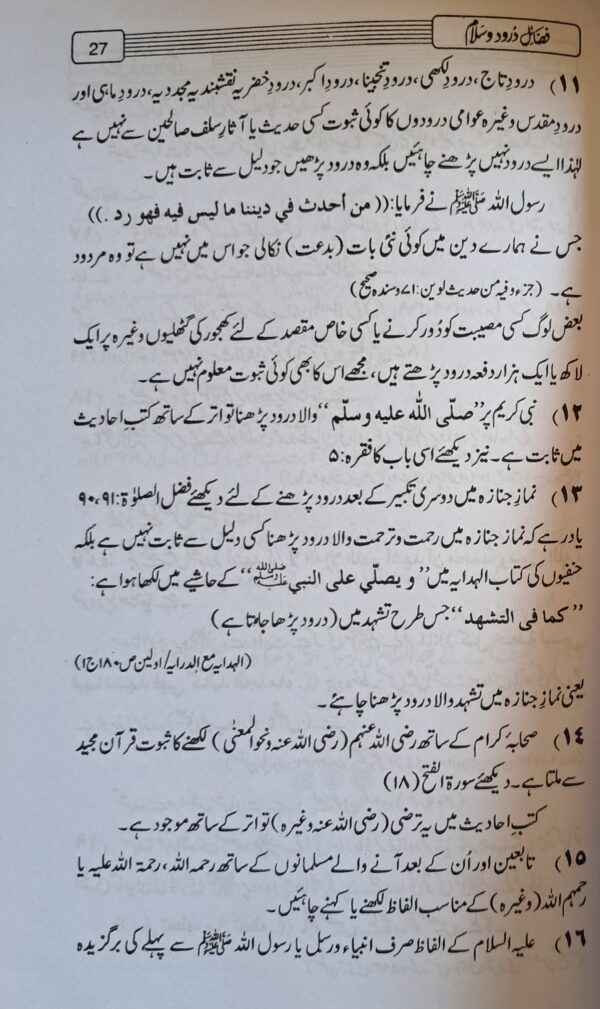 27
فضائل درود وسلام
۱۱) درودِ تاج، درودِ لکھی، درودِ تنجینا، درودِ اکبر، درودِ خضریہ نقشبندیہ مجددیہ، درودِ ماہی اور
درودِ مقدس وغیرہ عوامی درودوں کا کوئی ثبوت کسی حدیث یا آثارِ سلف صالحین سے نہیں ہے
لہٰذا ایسے درود نہیں پڑھنے چاہئیں بلکہ وہ درود پڑھیں جو دلیل سے ثابت ہیں۔
رسول اللہ ﷺ نے فرمایا: (( من أحدث في ديننا ما ليس فيه فهو رد . ))
جس نے ہمارے دین میں کوئی نئی بات (بدعت) نکالی جو اس میں نہیں ہے تو وہ مردود
ہے۔ (جزء فیہ من حدیث لوین: ۷۱ وسندہ صحیح)
بعض لوگ کسی مصیبت کو دُور کرنے یا کسی خاص مقصد کے لئے کھجور کی گٹھلیوں وغیرہ پر ایک
لاکھ یا ایک ہزار دفعہ درود پڑھتے ہیں، مجھے اس کا بھی کوئی ثبوت معلوم نہیں ہے۔
۱۲) نبی کریم پر ’’صلّى اللّٰه عليه وسلّم‘‘ والا درود پڑھنا تواتر کے ساتھ کتبِ احادیث
میں ثابت ہے۔ نیز دیکھئے اسی باب کا فقرہ: ۵
۱۳) نمازِ جنازہ میں دوسری تکبیر کے بعد درود پڑھنے کے لئے دیکھئے فضل الصلوٰۃ: ۹۰،۹۱
یاد رہے کہ نماز جنازہ میں رحمت وترحمت والا درود پڑھنا کسی دلیل سے ثابت نہیں ہے بلکہ
حنفیوں کی کتاب الہدایہ میں ’’و يصلّي على النبي ﷺ‘‘ کے حاشیے میں لکھا ہوا ہے:
’’كما في التشهد‘‘ جس طرح تشہد میں (درود پڑھا جاتا ہے)
(الہدایہ مع الدرایہ/اولین ص ۱۸۰ ج ۱)
یعنی نمازِ جنازہ میں تشہد والا درود پڑھنا چاہئے۔
۱۴) صحابۂ کرام کے ساتھ رضی اللہ عنہم (رضی اللہ عنہ ونحو المعنیٰ) لکھنے کا ثبوت قرآن مجید
سے ملتا ہے۔ دیکھئے سورۃ الفتح (۱۸)
کتبِ احادیث میں یہ ترضی (رضی اللہ عنہ وغیرہ) تواتر کے ساتھ موجود ہے۔
۱۵) تابعین اور اُن کے بعد آنے والے مسلمانوں کے ساتھ رحمہ اللہ، رحمۃ اللہ علیہ یا
رحمہم اللہ (وغیرہ) کے مناسب الفاظ لکھنے یا کہنے چاہئیں۔
۱۶) علیہ السلام کے الفاظ صرف انبیاء ورسل یا رسول اللہ ﷺ سے پہلے کی برگزیدہ